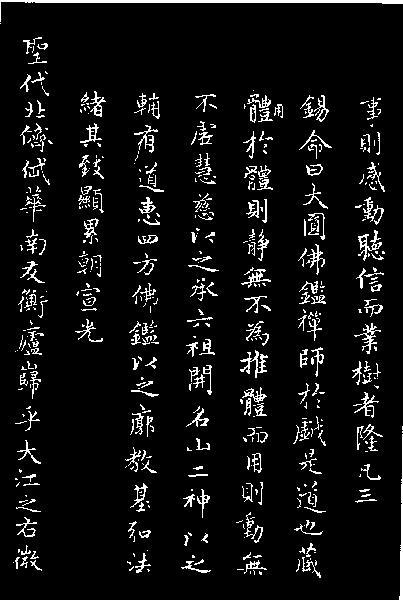 事則感動聽信而業樹者隆凡三
錫命曰大圓佛鑑禪師於戲是道也藏
體用於體則静無不為推體而用則動無
不慧慈以之承六祖開名山二神以之
輔有道惠四方佛鑑以之廓教基弘法
緒其致顯累朝宣光
聖代北儕岱華南友衡廬巋乎大江之右徽